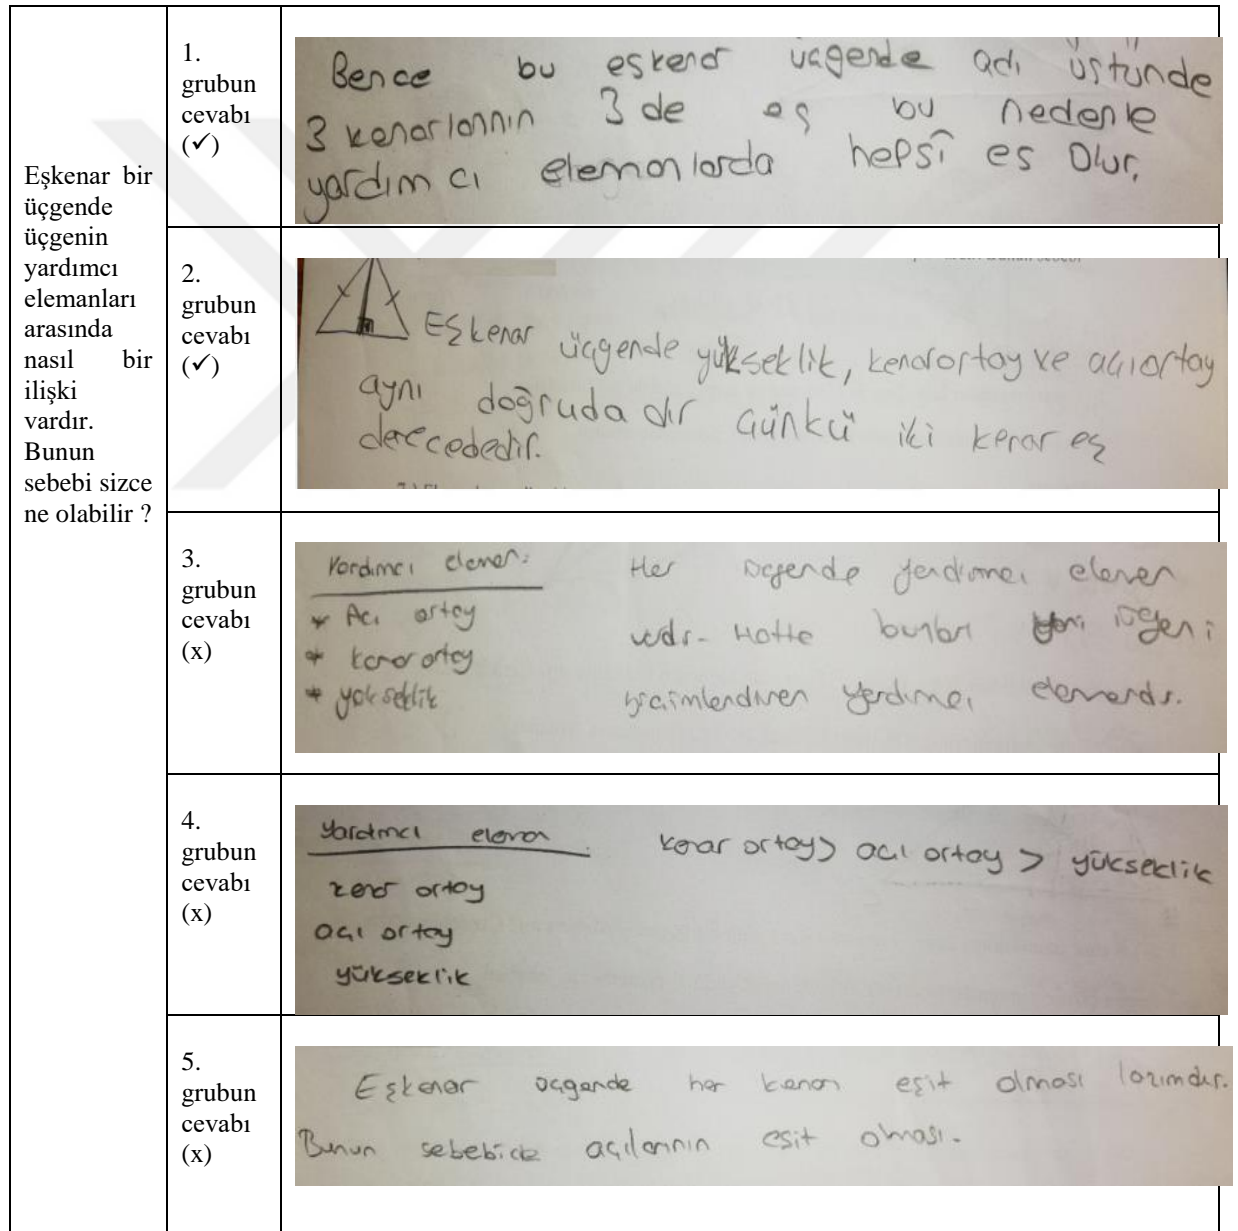 Eşkenar bir
üçgende
üçgenin
yardımcı
elemanları
arasında
nasıl bir
ilişki
vardır.
Bunun
sebebi sizce
ne olabilir ?
1.
grubun
cevabı
(✓)
Bence bu eşkenar üçgende adı üstünde
3 kenarlarının 3 de eş bu nedenle
yardım cı elemanlarda hepsi eş olur,
2.
grubun
cevabı
(✓)
Eşkenar üçgende yükseklik, kenarortay ve açıortay
aynı doğrudadır çünkü iki kenar eş
derecededir.
3.
grubun
cevabı
(x)
Yardımcı eleman:
* Açı ortay
* kenar ortay
* yükseklik
Her üçgende yardımcı eleman
vardır. Hatta bunları üçgeni
biçimlendiren yardımcı elemandır.
4.
grubun
cevabı
(x)
Yardımcı eleman
kenar ortay
açı ortay
yükseklik
kenar ortay > açı ortay > yükseklik
5.
grubun
cevabı
(x)
Eşkenar üçgende her kenarı eşit olması lazımdır.
Bunun sebebide açılarının eşit olması.